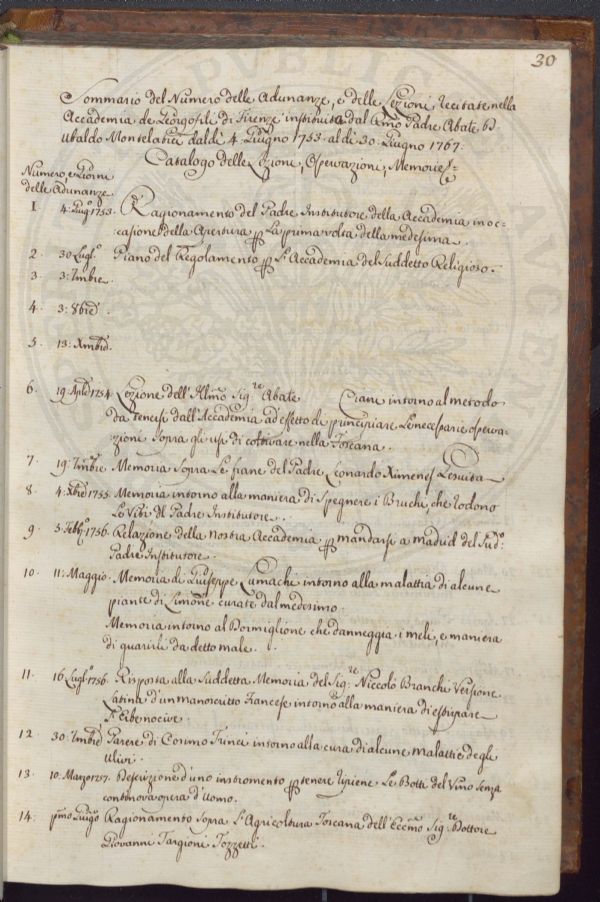 30
Sommario del Numero delle Adunanze, e delle Lezioni recitate nella
Accademia de Georgofili di Firenze instituita dal Rmo Padre Abate D.
Ubaldo Montelatici dal dì 4. Giugno 1753. al dì 30. Giugno 1767.
Catalogo delle Lezioni, Operazioni, Memorie &.
Numero, e Giorni
delle Adunanze.
1 4. Giugo 1753. Ragionamento del Padre Institutore della Accademia in oc=
casione della Apertura per La prima volta della medesima.
2. 30 Lugl.o Piano del Regolamento per L'Accademia del Suddetto Religioso.
3. 3. 7mbre.
4. 3. 8bre.
5. 13. Xmbre.
6. 19. Aple 1754. Lezione dell'Illmo Sig.re Abate Ciani intorno al metodo
da tenersi dall'Accademia ad effetto di principiare Le necessarie opera=
zioni Sopra gli usi di coltivare nella Toscana.
7. 19. 7mbre Memoria Sopra Le frane del Padre Leonardo Ximenes Gesuita
8. 4. Xbre 1755. Memoria intorno alla maniera di Spegnere i Bruchi, che rodono
Le Viti del Padre Institutore.
9. 5. Febb.o 1756. Relazione della nostra Accademia per mandarsi a Madrid del Sud.o
Padre Institutore.
10. 11. Maggio. Memoria di Giuseppe Lumachi intorno alla malattia di alcune
piante di Limone curate dal medesimo.
Memoria intorno al Dormiglione che danneggia i meli, e maniera
di guarirli da detto male.
11. 16 Lugl.o 1756. Risposta alla Suddetta Memoria del Sig.re Niccolò Branchi Versione
Latina d'un manoscritto Francese intorno alla maniera di estirpare
L'Erbe nocive.
12. 30. 7mbre Parere di Cosimo Trinci intorno alla cura di alcune malattie degli
ulivi.
13. 10. Marzo 1757. Descrizione d'uno instromento per tenere ripiene Le Botti del Vino Senza
continova opera d'Uomo.
14. pmo Giugo Ragionamento Sopra L'Agricoltura Toscana dell'Eccmo Sig.re Dottore
Giovanni Targioni Tozzetti.